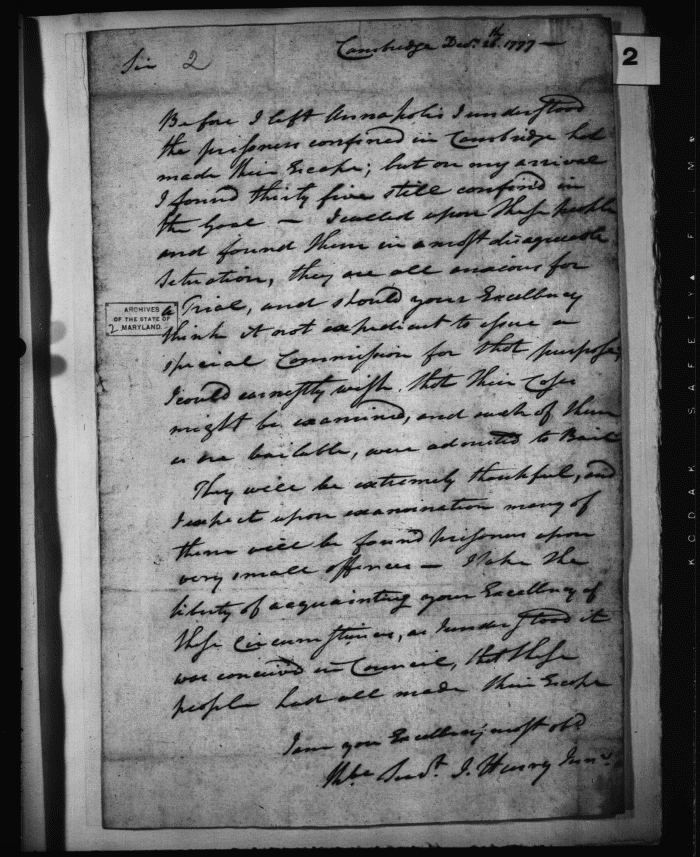 Cambridge Decr. 16th. 1777 —
Sir 2
2
Before I left Annapolis I understood
the prisoners confined in Cambridge had
made their Escape; but on my arrival
I found thirty five still confined in
the Goal — I called upon these people
and found them in a most disagreeable
Situation, they are all anxious for
a Trial, and should your Excellency
think it not expedient to issue a
special Commission for that purpose,
I could earnestly wish that their Cases
might be examined, and such of them
as are bailable, were admitted to Bail
They will be extremely thankful, and
I expect upon examination many of
them will be found prisoners upon
very small offences — I take the
liberty of acquainting your Excellency of
these Circumstances, as I understood it
was conceived in Council, that these
people had all made their Escape
I am your Excellency's most obd
Hble Servt. J. Henry Junr.
ARCHIVES
OF THE STATE OF
2 MARYLAND.
KODAK SAFETY